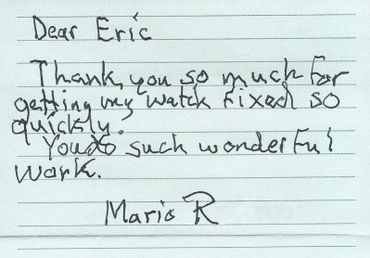 Dear Eric
Thank you so much for
getting my watch fixed so
quickly.
You do such wonderful
work.
Mario R